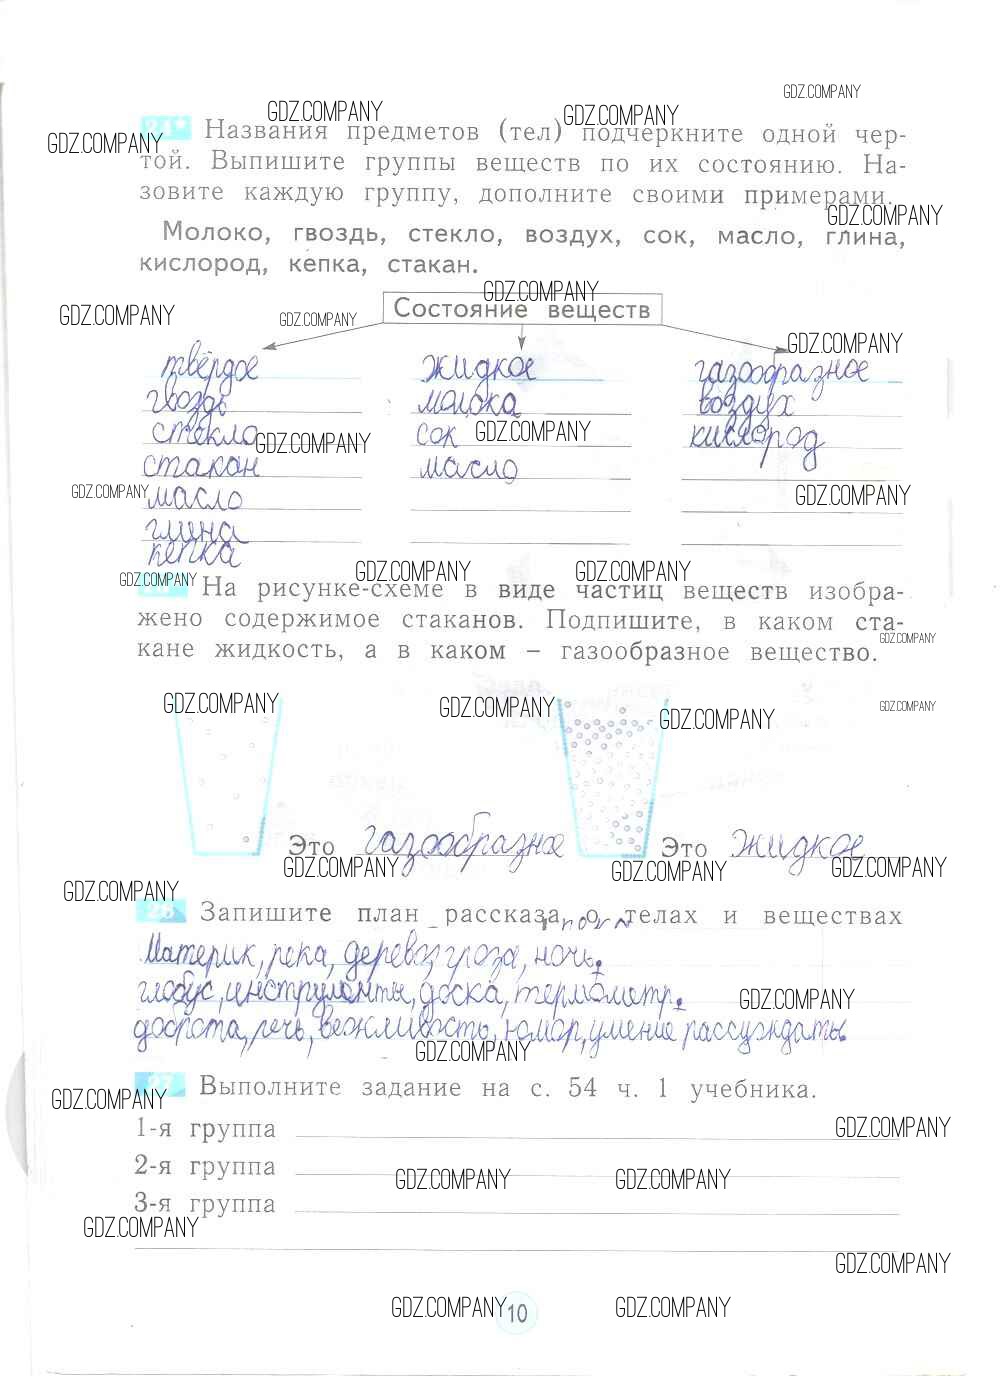 GDZ.COMPANY
GDZ.COMPANY GDZ.COMPANY
24* Названия предметов (тел) подчеркните одной чер-
GDZ.COMPANY
той. Выпишите группы веществ по их состоянию. На-
зовите каждую группу, дополните своими примерами.
GDZ.COMPANY
Молоко, гвоздь, стекло, воздух, сок, масло, глина,
кислород, кепка, стакан.
GDZ.COMPANY
Состояние веществ
GDZ.COMPANY GDZ.COMPANY
GDZ.COMPANY
твёрдое жидкое газообразное
гвоздь молока воздух
стекло сок GDZ.COMPANY кислород
GDZ.COMPANY
стакан масло
GDZ.COMPANY масло GDZ.COMPANY
глина
кепка
GDZ.COMPANY GDZ.COMPANY
GDZ.COMPANY На рисунке-схеме в виде частиц веществ изобра-
жено содержимое стаканов. Подпишите, в каком ста-
GDZ.COMPANY
кане жидкость, а в каком – газообразное вещество.
GDZ.COMPANY GDZ.COMPANY GDZ.COMPANY
GDZ.COMPANY
Это газообразное Это жидкое
GDZ.COMPANY GDZ.COMPANY GDZ.COMPANY
GDZ.COMPANY
26 Запишите план рассказа о телах и веществах
Материк, река, дерево, гроза, ночь.
глобус, инструменты, доска, термометр.
GDZ.COMPANY
доброта, речь, вежливость, юмор, умение рассуждать
GDZ.COMPANY
27 Выполните задание на с. 54 ч. 1 учебника.
GDZ.COMPANY
1-я группа GDZ.COMPANY
2-я группа
GDZ.COMPANY GDZ.COMPANY
3-я группа
GDZ.COMPANY
GDZ.COMPANY
GDZ.COMPANY 10 GDZ.COMPANY